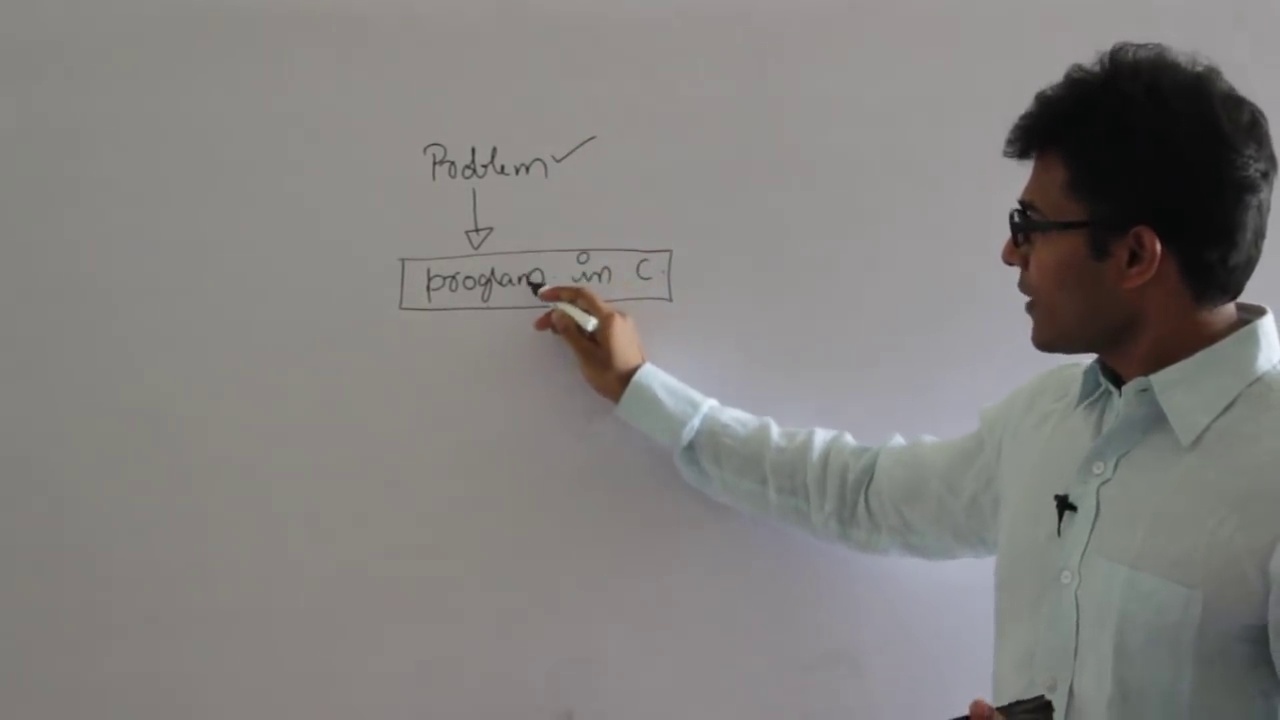 Problem ✓
program in C.